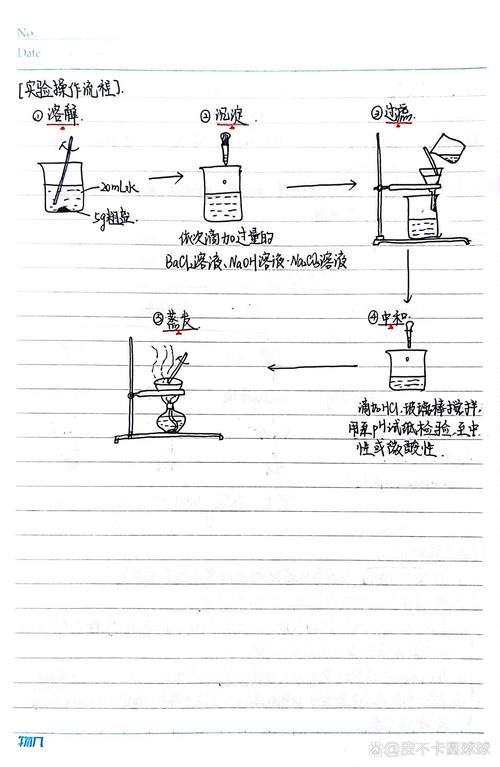 No.
Date
[实验操作流程].
① 溶解.
② 沉淀.
③ 过滤.
20mL水
5g粗盐.
依次滴加过量的
BaCl₂溶液、NaOH溶液、Na₂CO₃溶液
⑤ 蒸发.
④ 中和.
滴加HCl.玻璃棒搅拌.
用pH试纸检验至中
性或微酸性.
@皮不卡圆球球